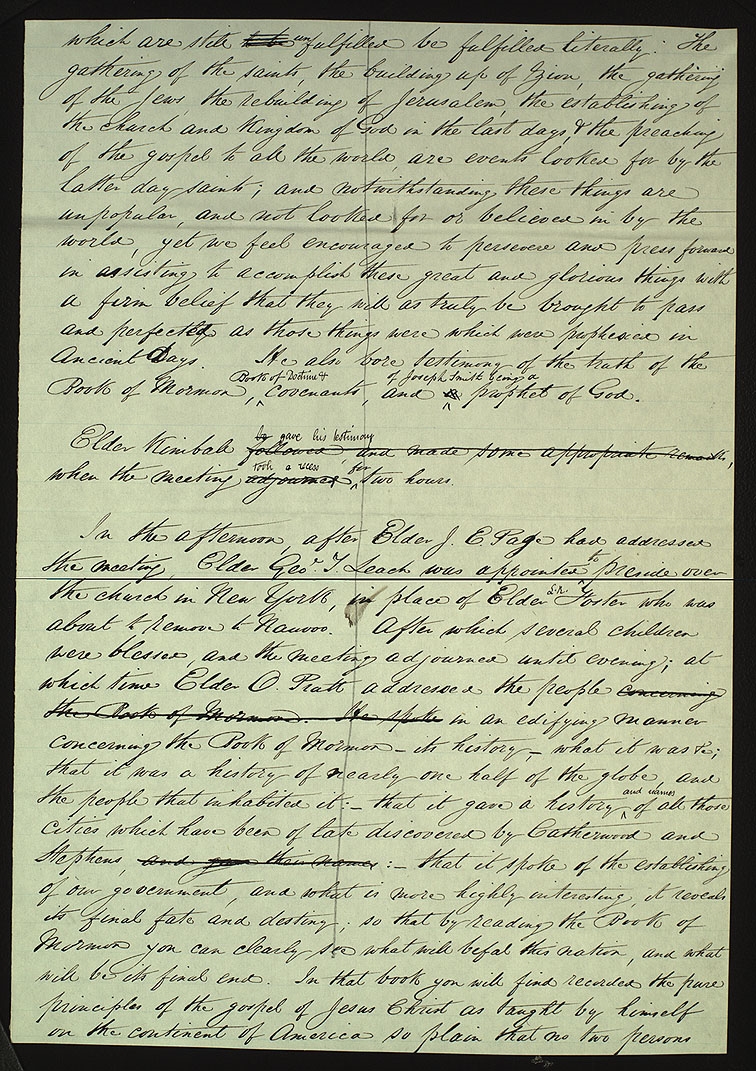 which are still to be unfulfilled be fulfilled literally: The
gathering of the saints, the building up of Zion, the gathering
of the Jews the rebuilding of Jerusalem, the establishing of
the church and kingdom of God in the last days, & the preaching
of the gospel to all the world are events looked for by the
latter day saints; and notwithstanding these things are
unpopular, and not looked for or believed in by the
world, yet we feel encouraged to persevere and press forward
in assisting to accomplish these great and glorious things with
a firm belief that they will as truly be brought to pass
and perfected as those things were which were prophesied in
Ancient Days. He also bore testimony of the truth of the
Book of Doctrine & of Joseph Smith being a
Book of Mormon, Covenants, and prophet of God.
gave his testimony
Elder Kimball followed and made some appropriate remarks,
took a recess for
when the meeting adjourned, two hours.
In the afternoon, after Elder J. E. Page had addressed
the meeting, Elder Geo. T. Leach was appointed to preside over
the church in New York, in place of Elder L. R. Foster who was
about to remove to Nauvoo. After which several children
were blessed, and the meeting adjourned until evening; at
which time Elder O. Pratt addressed the people concerning
the Book of Mormon. He spoke in an edifying manner
concerning the Book of Mormon – its history, – what it was &c;
that it was a history of nearly one half of the globe, and
the people that inhabited it: – that it gave a history and names of all those
cities which have been of late discovered by Catherwood and
Stephens, and gave their names: – that it spoke of the establishing
of our government, and what is more highly interesting, it reveals
its final fate and destiny; so that by reading the Book of
Mormon you can clearly see what will befal this nation, and what
will be its final end. In that book you will find recorded the pure
principles of the gospel of Jesus Christ as taught by himself
on the continent of America so plain that no two persons